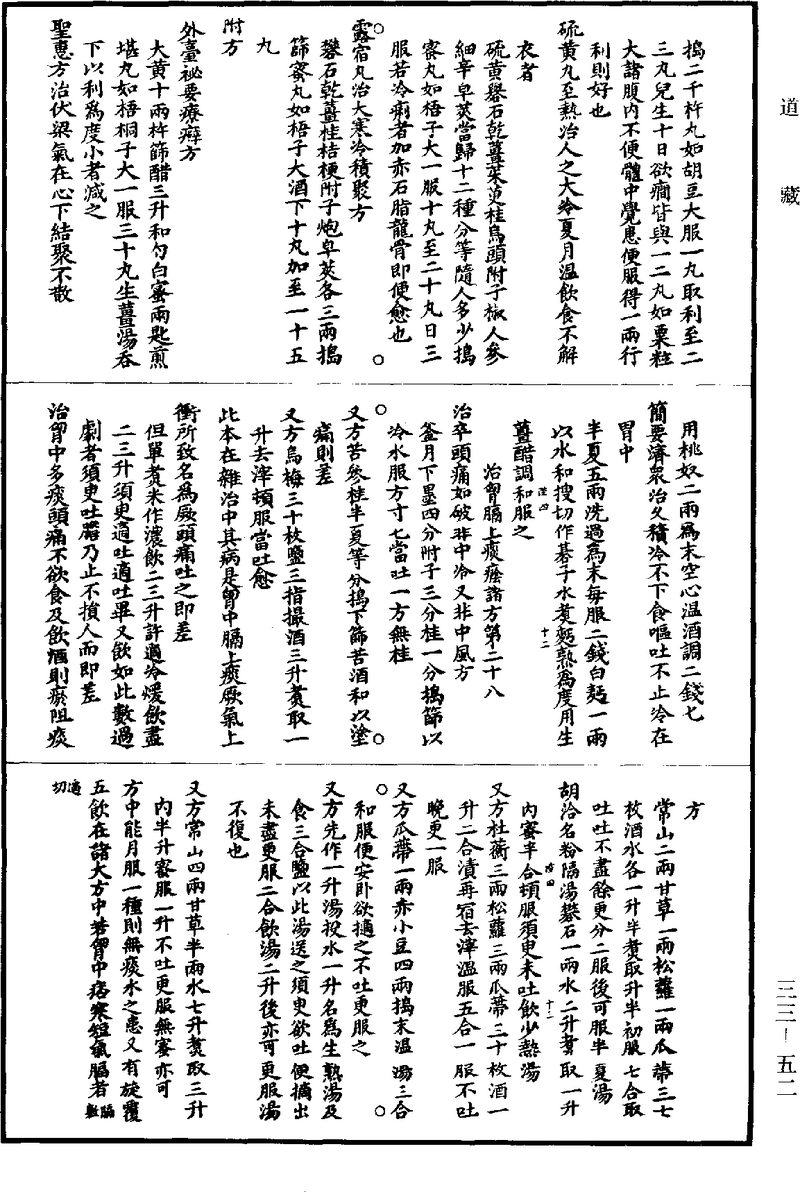 道藏
搗二千杵丸如胡豆大服一丸取利至二
三丸兒生十日欲癎皆與一二丸如粟粒
大諸腹內不便體中覺患便服得一兩行
利則好也
硫黃丸至熱治人之大冷夏月溫飲食不解
衣者
硫黃礜石乾薑茱萸桂烏頭附子椒人參
細辛皁莢當歸十二種分等隨人多少搗
蜜丸如梧子大一服十丸至二十丸日三
服若冷痢者加赤石脂龍骨即便愈也
露宿丸治大寒冷積聚方
礜石乾薑桂桔梗附子炮皁莢各三兩搗
篩蜜丸如梧子大酒下十丸加至一十五
丸
附方
外臺祕要療癖方
大黃十兩杵篩醋三升和勻白蜜兩匙煎
堪丸如梧桐子大一服三十丸生薑湯吞
下以利爲度小者減之
聖惠方治伏梁氣在心下結聚不散
用桃奴二兩爲末空心溫酒調二錢七
簡要濟衆治久積冷不下食嘔吐不止冷在
胃中
半夏五兩洗過爲末每服二錢白麵一兩
以水和搜切作碁子水煑麪熟爲度用生
薑醋調和服之
陸四
十二
治胷膈上痰癊諸方第二十八
治卒頭痛如破非中冷又非中風方
釜月下墨四分附子三分桂一分搗篩以
冷水服方寸七當吐一方無桂
又方苦參桂半夏等分搗下篩苦酒和以塗
痛則差
又方烏梅三十枚鹽三指撮酒三升煑取一
升去滓頓服當吐愈
此本在雜治中其病是胷中膈上痰厥氣上
衝所致名爲厥頭痛吐之即差
但單煑米作濃飲二三升許適冷煖飲盡
二三升須臾適吐適吐畢又飲如此數過
劇者須臾吐膽乃止不損人而即差
治胷中多痰頭痛不欲食及飲酒則瘀阻痰
方
常山二兩甘草一兩松蘿一兩瓜蔕三七
枚酒水各一升半煑取升半初服七合取
吐吐不盡餘更分二服後可服半夏湯
胡洽名粉隔湯礬石一兩水二升煑取一升
內蜜半合頓服須臾未吐飲少熱湯
陸四
十二
又方杜蘅三兩松蘿三兩瓜蔕三十枚酒一
升二合漬再宿去滓溫服五合一服不吐
晚更一服
又方瓜蔕一兩赤小豆四兩搗末溫湯三合
和服便安卧欲擿之不吐更服之
又方先作一升湯投水一升名爲生熟湯及
食三合鹽以此湯送之須臾欲吐便摘出
未盡更服二合飲湯二升後亦可更服湯
不復也
又方常山四兩甘草半兩水七升煑取三升
內半升蜜服一升不吐更服無蜜亦可
方中能月服一種則無痰水之患又有旋覆
五飲在諸大方中若胷中痞寒短氣膈者膈敷
逼切
三三—五二